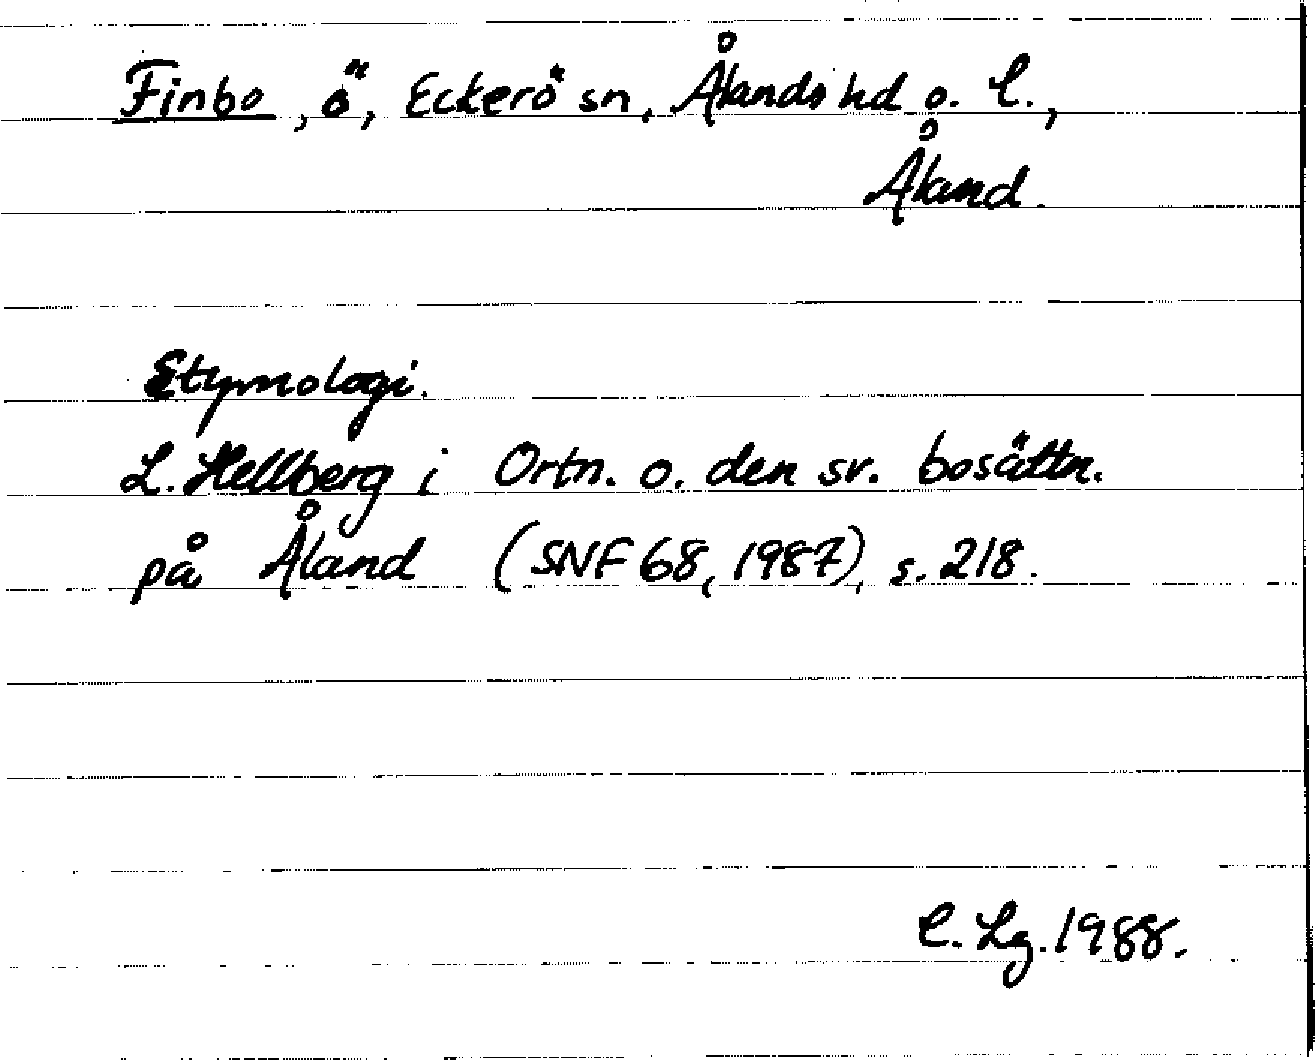 Finbo, ö, Eckerö sn, Ålands hd o. l.,
Åland.
Etymologi.
L. Hellberg i Ortn. o. den sv. bosättn.
på Åland (SNF 68, 1987), s. 218.
C. Lg. 1988.